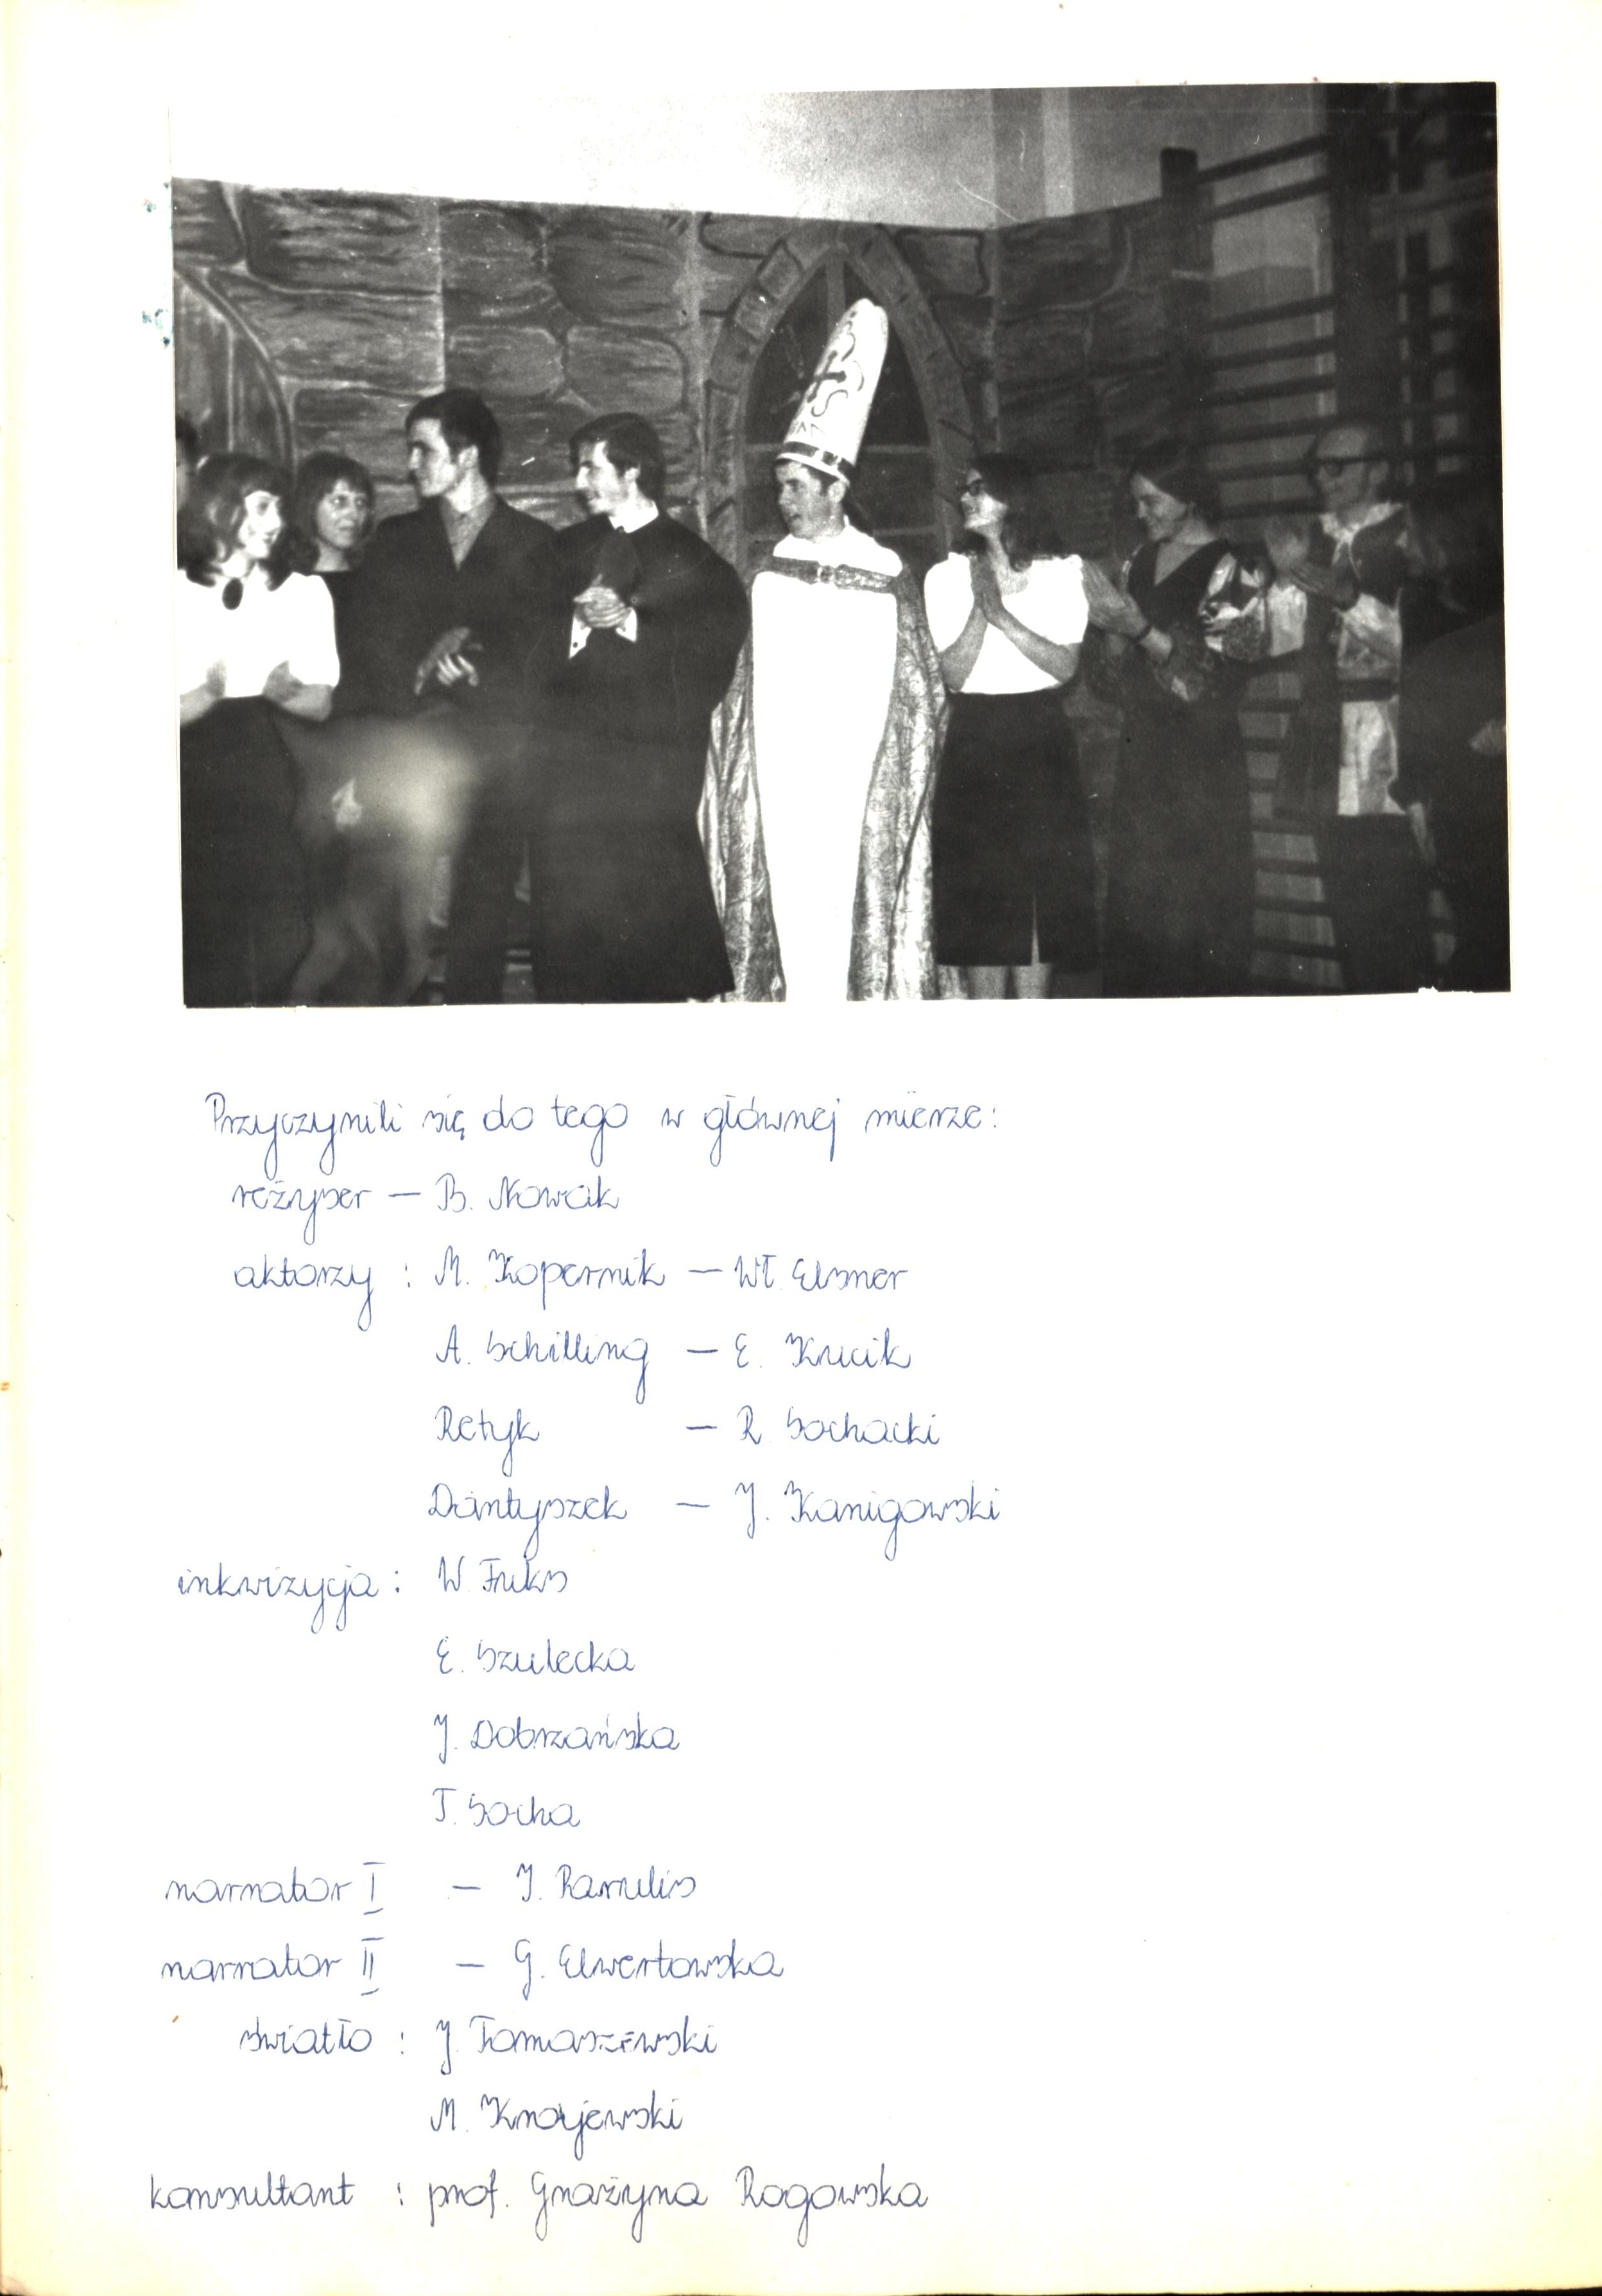 Przyczynili się do tego w głównej mierze:
reżyser – B. Nowak
aktorzy : M. Kopernik – Wł. Elsner
A. Schilling – E. Krucik
Retyk – R. Sochacki
Dantyszek – J. Kanigowski
inkwizycja : W. Fuks
E. Szulecka
J. Dobrzańska
T. Socha
narrator I – J. Ramulis
narrator II – G. Elwertowska
światło : J. Tomaszewski
M. Krajewski
konsultant : prof. Grażyna Rogowska